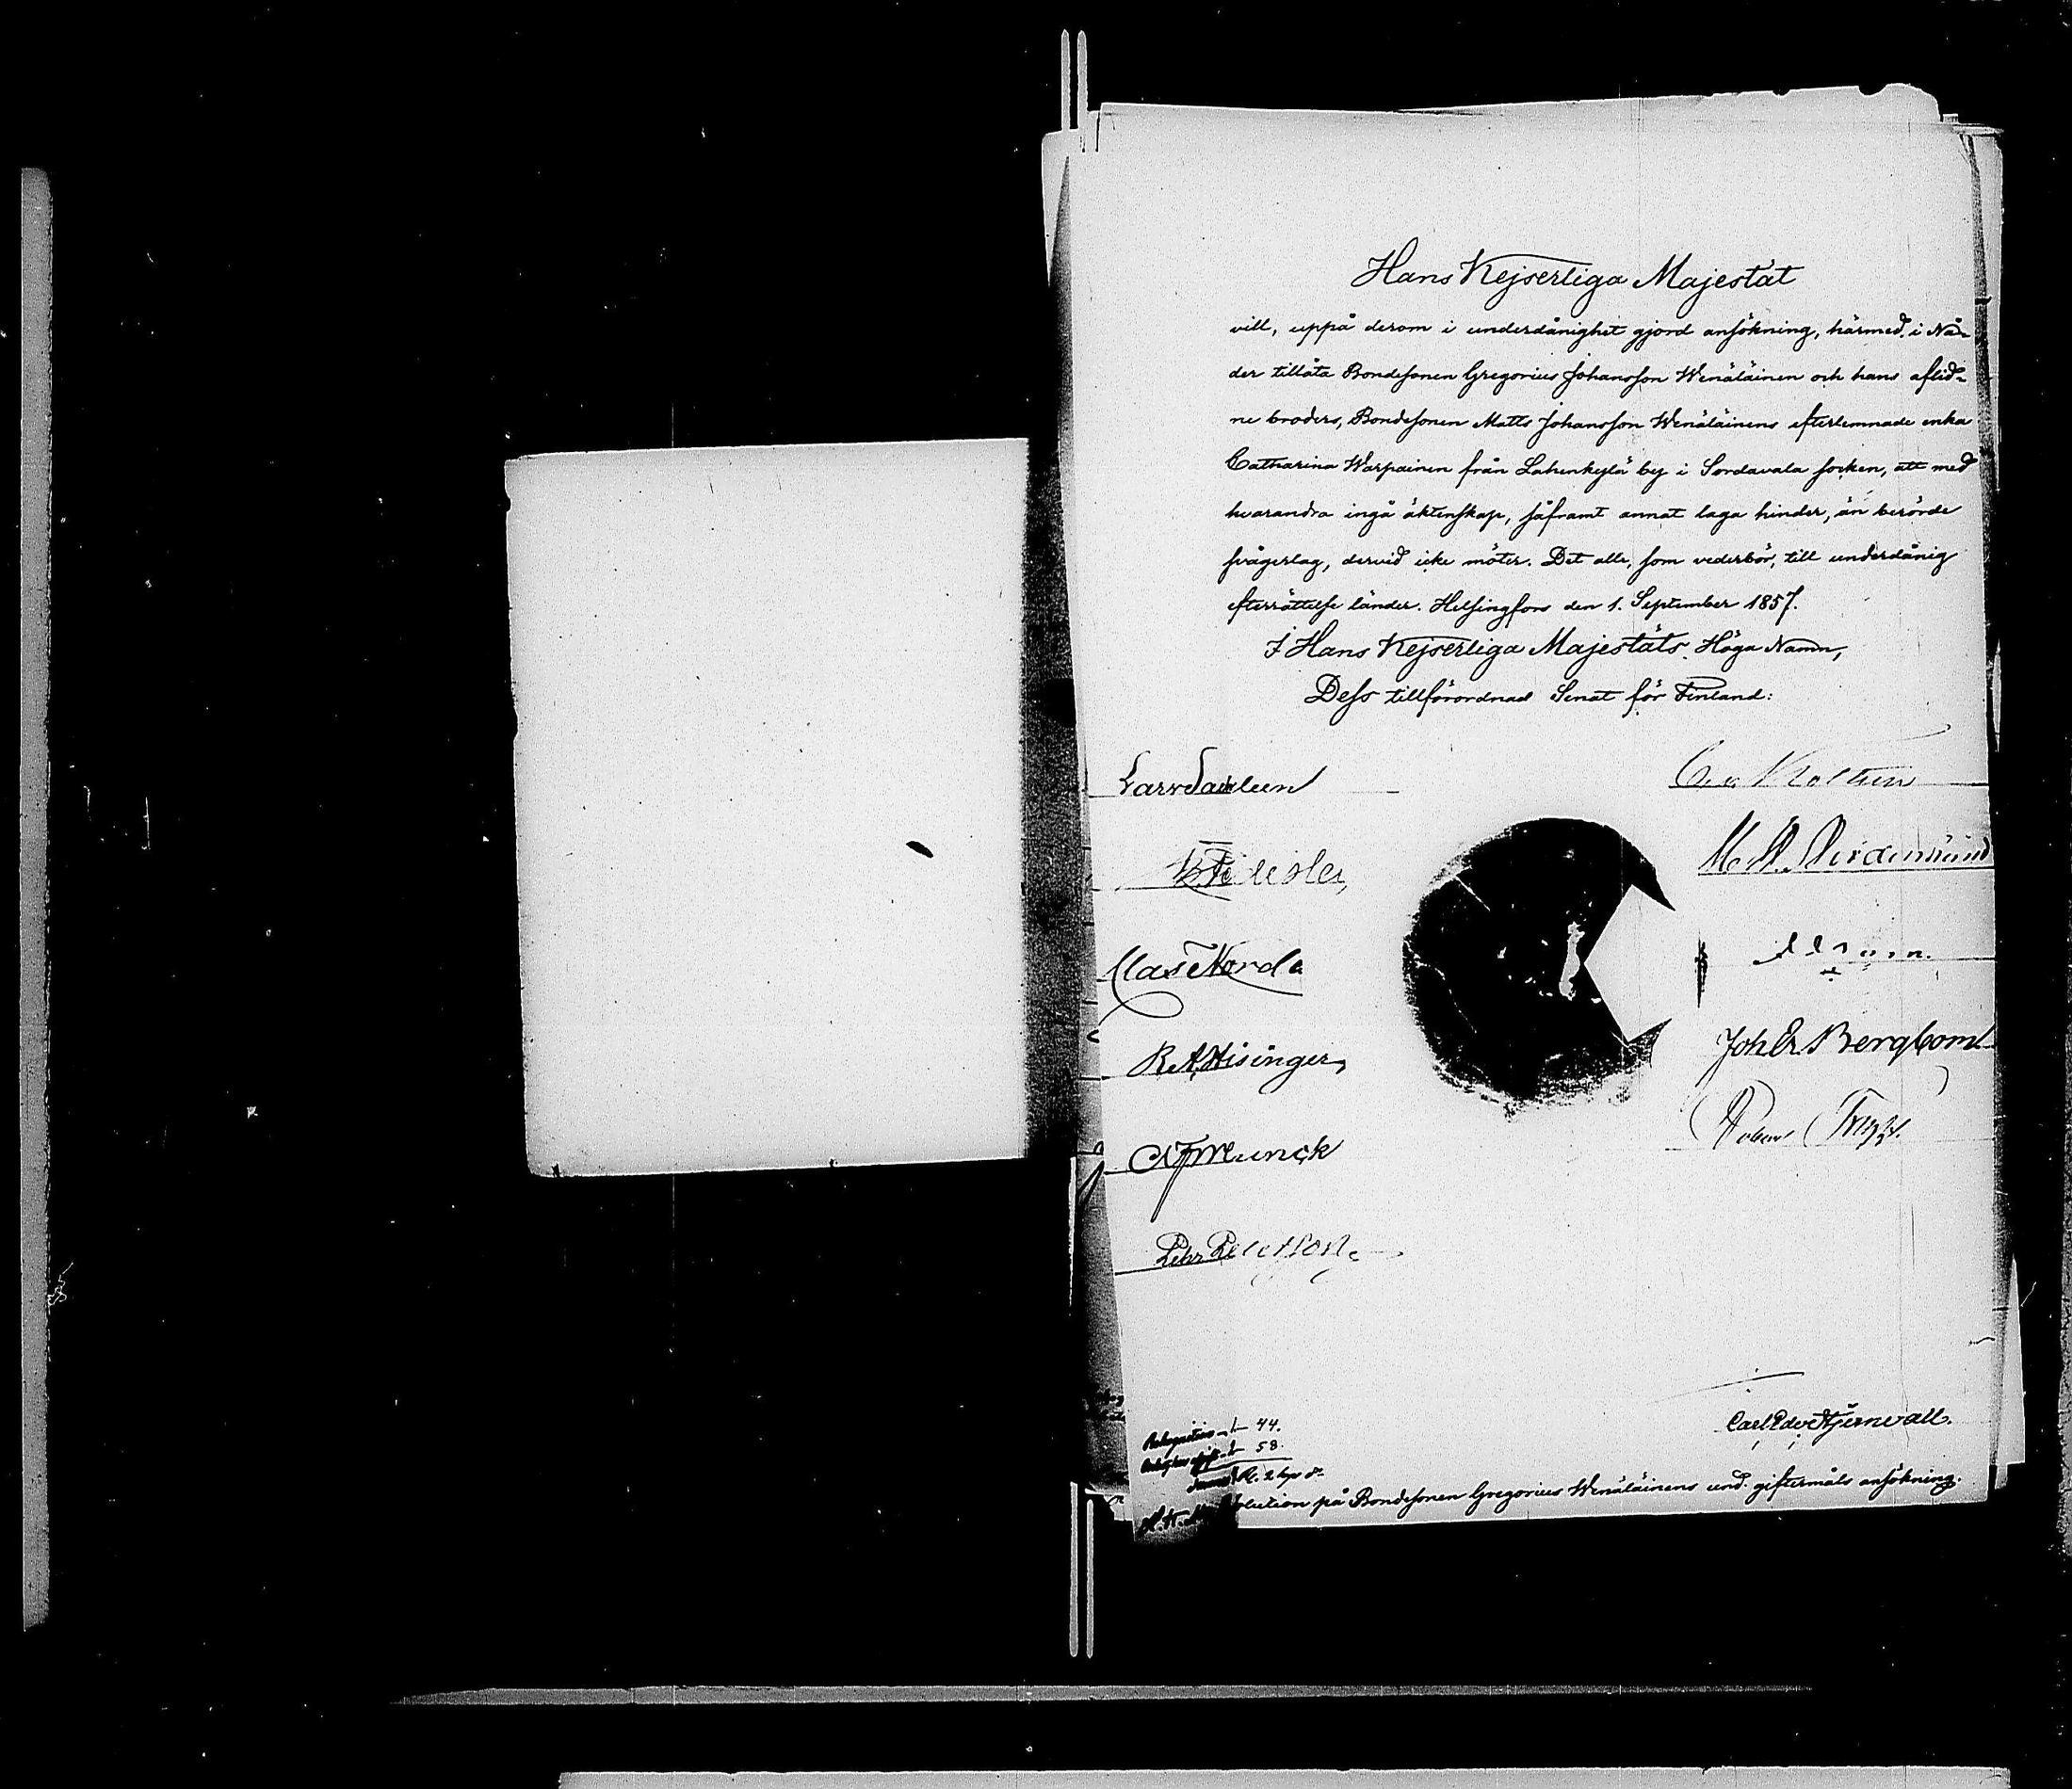 Hans Kejserliga Majestät
vill, uppå derom i underdånighet gjord ansökning, härmed i Nå-
der tillåta Bondesonen Gregorius Johansson Wenäläinen och hans aflid-
ne broders, Bondesonen Matts Johansson Wenäläinens efterlemnade enka
Catharina Warpainen från Lahenkylä by i Sordavala socken, att med
hvarandra ingå äktenskap, såframt annat laga hinder, än berörde
svågerlag, dervid icke möter. Det alle, som vederbör, till underdånig
efterrättelse länder. Helsingfors den 1. September 1857.
I Hans Kejserliga Majestäts Höga Namn,
Dess tillförordnad Senat för Finland:
Lars Sackleen
Clas Nord
R. A. Hisinger
Joh Er Bergbom
Munck
Robert Trapp
Pehr
Carl Edv Stjernvall
44.
58.
på Bondesonen Gregorius Wenäläinens und. giftermåls ansökning.